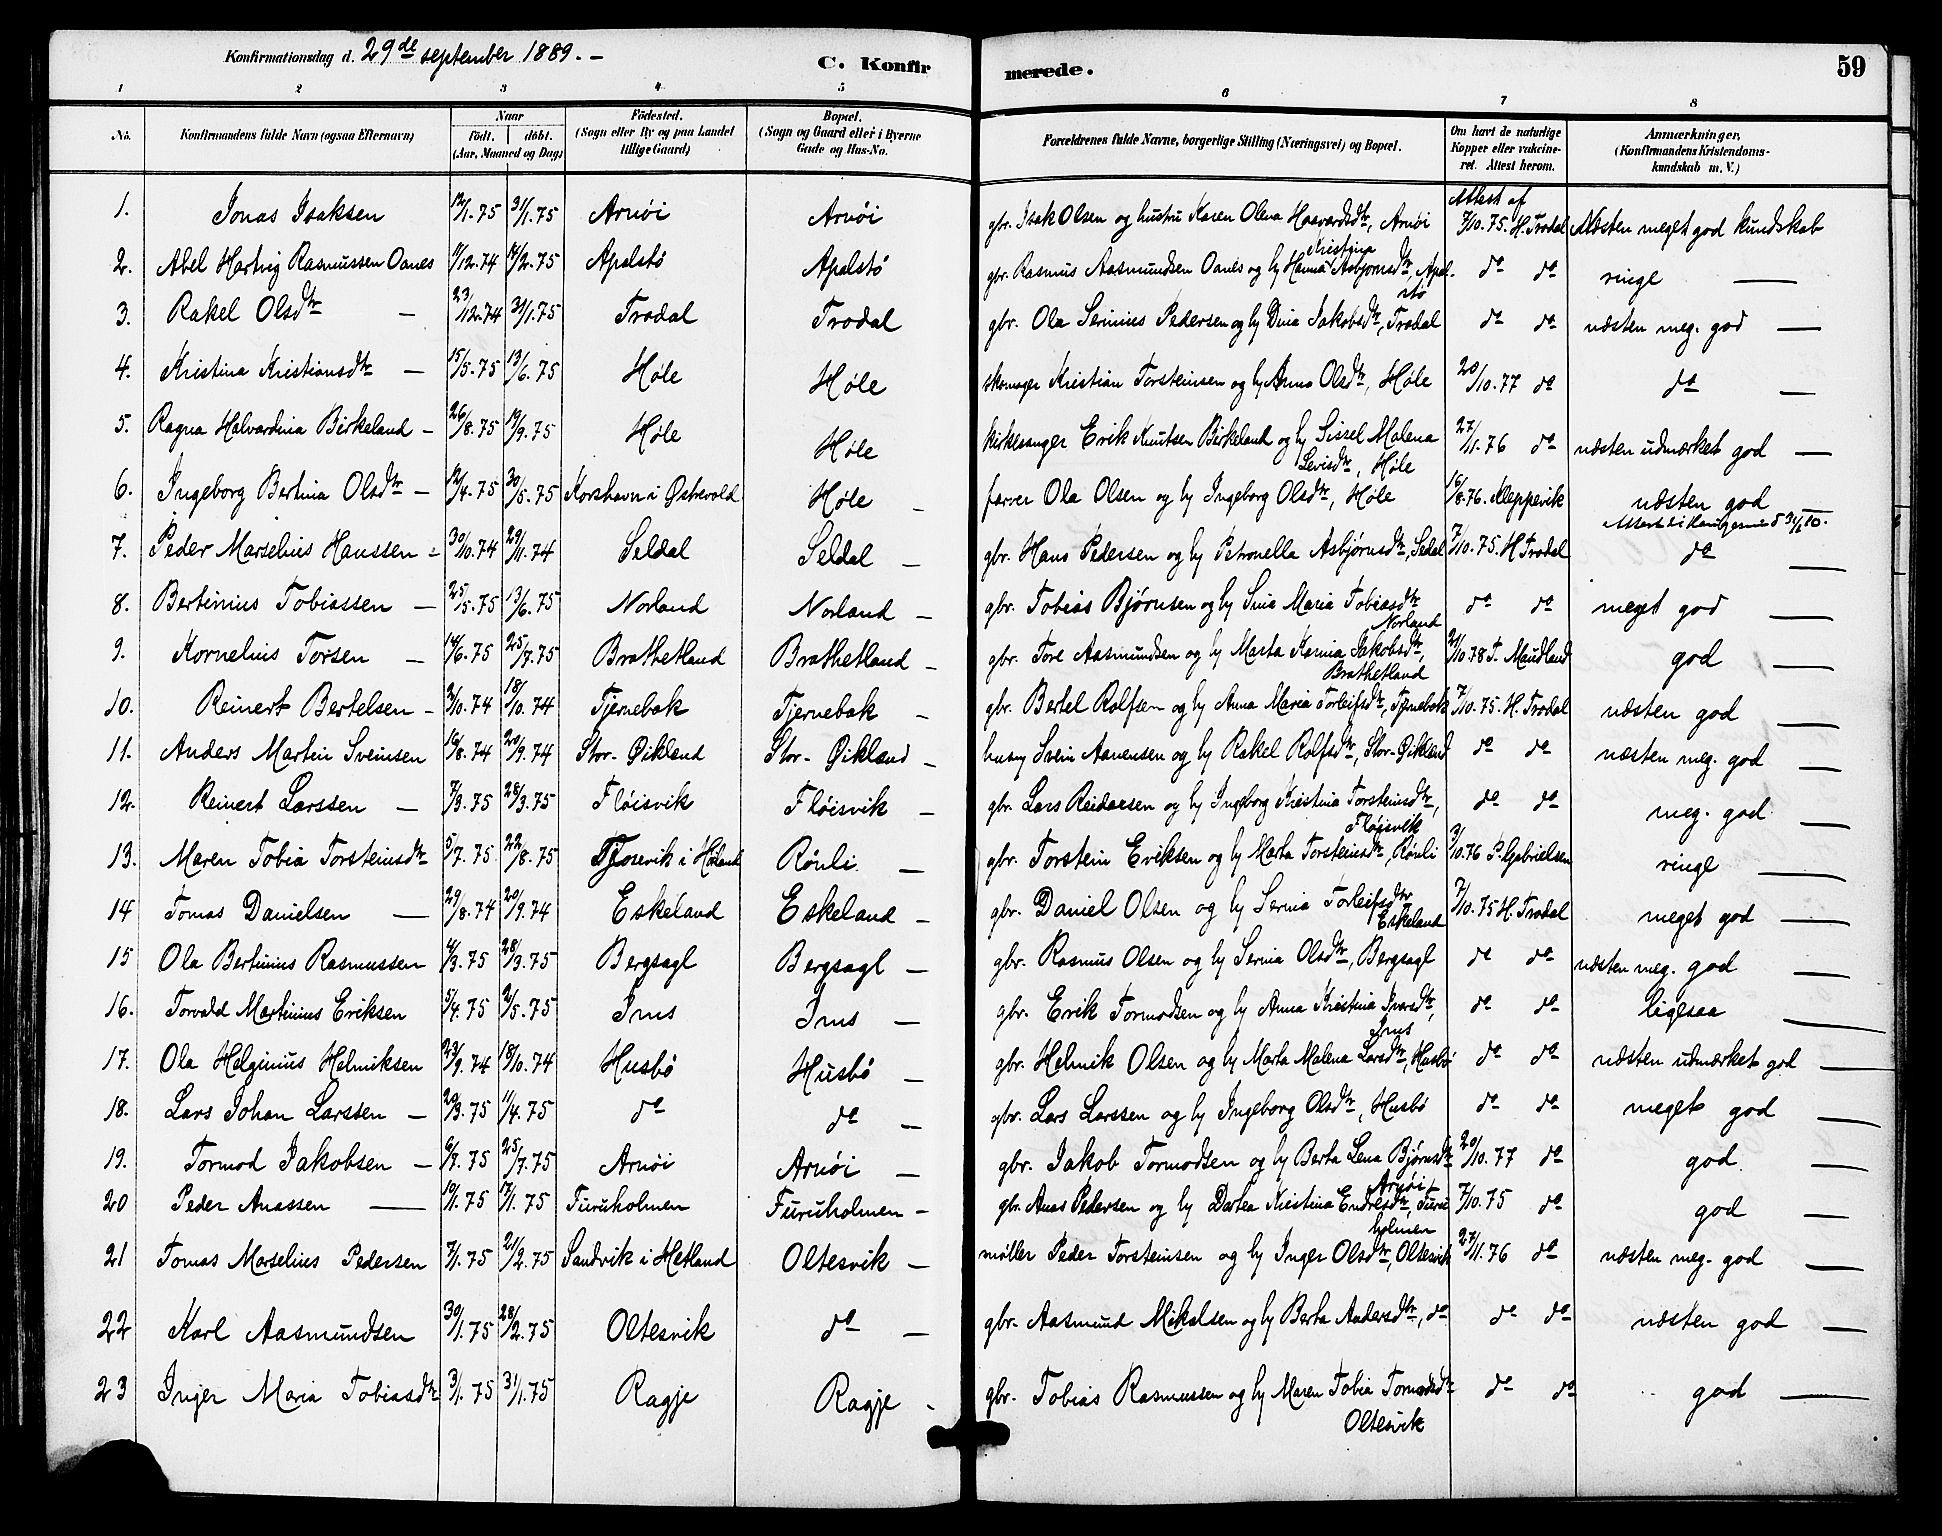 Konfirmationsdag d. 29de september 1889. –
C. Konfir merede. 59
1 2 3 4 5 6 7 8
No. Konfirmandens fulde Navn (ogsaa Efternavn) Naar födt. döbt. (Aar, Maaned og Dag) Födested. (Sogn eller By og paa Landet tillige Gaard) Bopæl. (Sogn og Gaard eller i Byerne Gade og Hus-No. Forældrenes fulde Navne, borgerlige Stilling (Næringsvei) og Bopæl. Om havt de naturlige Kopper eller vakcineret. Attest herom. Anmærkninger, (Konfirmandens Kristendomskundskab m. V.)
1. Jonas Isaksen 12/1.75 31/1.75 Arnöi Arnöi gbr. Isak Olsen og hustru Karen Olena Haavardsdtr, Arnöi Attest af 7/10.75. H. Trodal Næsten meget god kundskab
2. Abel Hartvig Rasmussen Oanes 11/12.74 14/2.75 Apalstö Apalstö gbr. Rasmus Aasmundsen Oanes og h. Hanna Kristina Asbjørnsdtr, Apalstö do do ringe —
3. Rakel Olsdtr — 23/12.74 31/1.75 Trodal Trodal gbr. Ola Serinius Pedersen og h. Dina Jakobsdtr, Trodal do do næsten meg. god —
4. Kristina Kristiansdtr — 15/5.75 13/6.75 Höle Höle skomager Kristian Torsteinsen og h. Anna Olsdtr, Höle 20/10.77 do do —
5. Ragna Halvardina Birkeland – 26/8.75 19/9.75 Höle Höle kirkesanger Erik Knutsen Birkeland og h. Sissel Malena Levisdtr, Höle 27/11.76 do næsten udmærket god —
6. Ingeborg Bertina Olsdtr – 12/4.75 30/5.75 Korshavn i Østevold Höle – farver Ola Olsen og h. Ingeborg Olsdtr, Höle 16/8.76. Kleppevik næsten god —
7. Peder Marselius Hanssen – 30/10.74 29/11.74 Seldal Seldal – gbr. Hans Pedersen og h. Petronella Asbjørnsdtr, Sedal 7/10.75. H Trodal do —
8. Bertinius Tobiassen – 25/5.75 13/6.75 Norland Norland – gbr. Tobias Bjørnsen og h. Sina Maria Tobiasdtr Norland do do meget god —
9. Kornelius Torsen — 14/6.75 25/7.75 Brathetland Brathetland – gbr. Tore Aasmundsen og h. Marta Karina Jakobsdtr, Brathetland 21/10.78 T. Maudland god —
10. Reinert Bertelsen – 3/10.74 18/10.74 Tjernebak Tjernebak – gbr. Bertel Rolfsen og h. Anna Maria Torleifsdtr, Tjernebak 7/10.75. H. Trodal næsten god —
11. Anders Martin Sveinsen 16/8.74 20/9.74 Stor-Øikland Stor-Øikland – husm Svein Aanensen og h. Rakel Rolfsdtr, Stor-Øikland do do næsten meg. god —
12. Reinert Larssen — 7/3.75 28/3.75 Flöisvik Flöisvik – gbr. Lars Reidarsen og h. Ingeborg Kristina Torsteinsdtr, Flöisvik do do meg. god —
13. Maren Tobia Torsteinsdtr 5/7.75 22/8.75 i Höland Rönli — gbr. Torstein Eriksen og h. Marta Torsteinsdtr, Rönli 3/10.76 P. Gabrielsen ringe —
14 Tomas Danielsen — 29/8.74 20/9.74 Eskeland Eskeland – gbr. Daniel Olsen og h. Serina Torleifsdtr Eskeland 7/10.75 H. Trodal meget god —
15 Ola Bertinius Rasmussen 4/3.75 28/3.75 Bergsagl Bergsagl – gbr. Rasmus Olsen og h. Serina Olsdtr, Bergsagl do do næsten meg. god —
16. Torvald Martinius Eriksen 5/4.75 2/5.75 Ims Ims — gbr. Erik Tormodsen og h. Anna Kristina Ivarsdtr, Ims do do ligesaa —
17. Ola Helginius Helmiksen 23/9.74 18/10.74 Husbö Husbö — gbr. Helmik Olsen og h. Marta Malena Larsdtr, Husbö do do næsten udmærket god —
18. Lars Johan Larssen – 20/3.75 11/4.75 do do — gbr. Lars Larssen og h. Ingeborg Olsdtr, Husbö do do meget god —
19. Tormod Jakobsen – 6/7.75 25/7.75 Arnöi Arnöi — gbr. Jakob Tormodsen og h. Berta Lena Bjørnsdtr Arnöi 20/10.77 do god —
20 Peder Anassen — 10/1.75 17/1.75 Furuholmen Furuholmen – gbr. Anas Pedersen og h. Dortea Kristina Endresdtr, Furuholmen 7/10.75 do god —
21 Tomas Marselius Pedersen 7/1.75 21/2.75 Sandvik i Hetland Oltesvik — møller Peder Torsteinsen og h. Inger Olsdtr, Oltesvik 27/11.76 do næsten meg. god —
22 Karl Aasmundsen 30/1.75 28/2.75 Oltesvik do — gbr. Aasmund Mikalsen og h. Berta Andersdtr, do do do næsten god —
23 Inger Maria Tobiasdtr 3/1.75 31/1.75 Ragje Ragje – gbr. Tobias Rasmussen og h. Maren Tobia Tormodsdtr Oltesvik do do god —